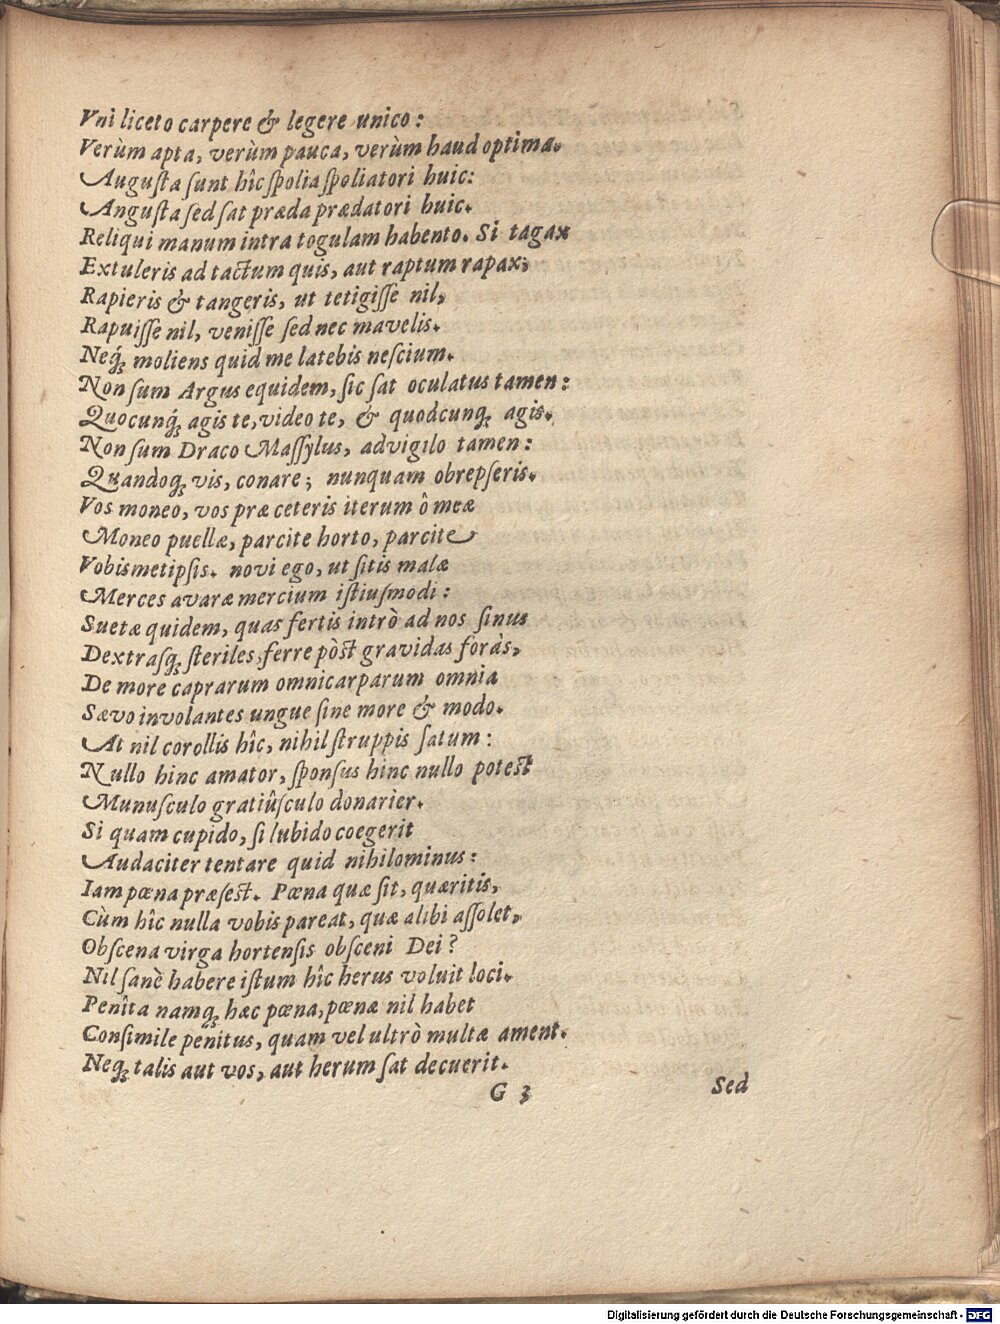 Vni liceto carpere & legere unico:
Verùm apta, verùm pauca, verùm haud optima.
Augusta sunt hîc spolia spoliatori huic:
Angusta sed sat præda prædatori huic.
Reliqui manum intra togulam habento. Si tagax
Extuleris ad tactum quis, aut raptum rapax;
Rapieris & tangeris, ut tetigisse nil,
Rapuisse nil, venisse sed nec mavelis.
Neq́; moliens quid me latebis nescium.
Non sum Argus equidem, sic sat oculatus tamen:
Quocunq́; agis te, video te, & quodcunq; agis.
Non sum Draco Massylus, advigilo tamen:
Quandoq; vis, conare; nunquam obrepseris.
Vos moneo, vos præ ceteris iterum ô meæ
Moneo puellæ, parcite horto, parcite
Vobismetipsis. novi ego, ut sitis malæ
Merces avaræ mercium istiusmodi:
Suetæ quidem, quas fertis intrò ad nos sinus
Dextrasq; steriles, ferre pòst gravidas foràs,
De more caprarum omnicarparum omnia
Sævo involantes ungue sine more & modo.
At nil corollis hîc, nihil struppis satum:
Nullo hinc amator, sponsus hinc nullo potest
Munusculo gratiûsculo donarier.
Si quam cupido, si lubido coegerit
Audaciter tentare quid nihilominus:
Iam pœna præsest. Pœna quæ sit, quæritis,
Cùm hîc nulla vobis pareat, quæ alibi assolet,
Obscena virga hortensis obsceni Dei?
Nil sanè habere istum hîc herus voluit loci.
Penîta namq; hæc pœna, pœnæ nil habet
Consimile penitus, quam vel ultrò multæ ament.
Neq; talis aut vos, aut herum sat decuerit.
G 3 Sed
Digitalisierung gefördert durch die Deutsche Forschungsgemeinschaft - DFG